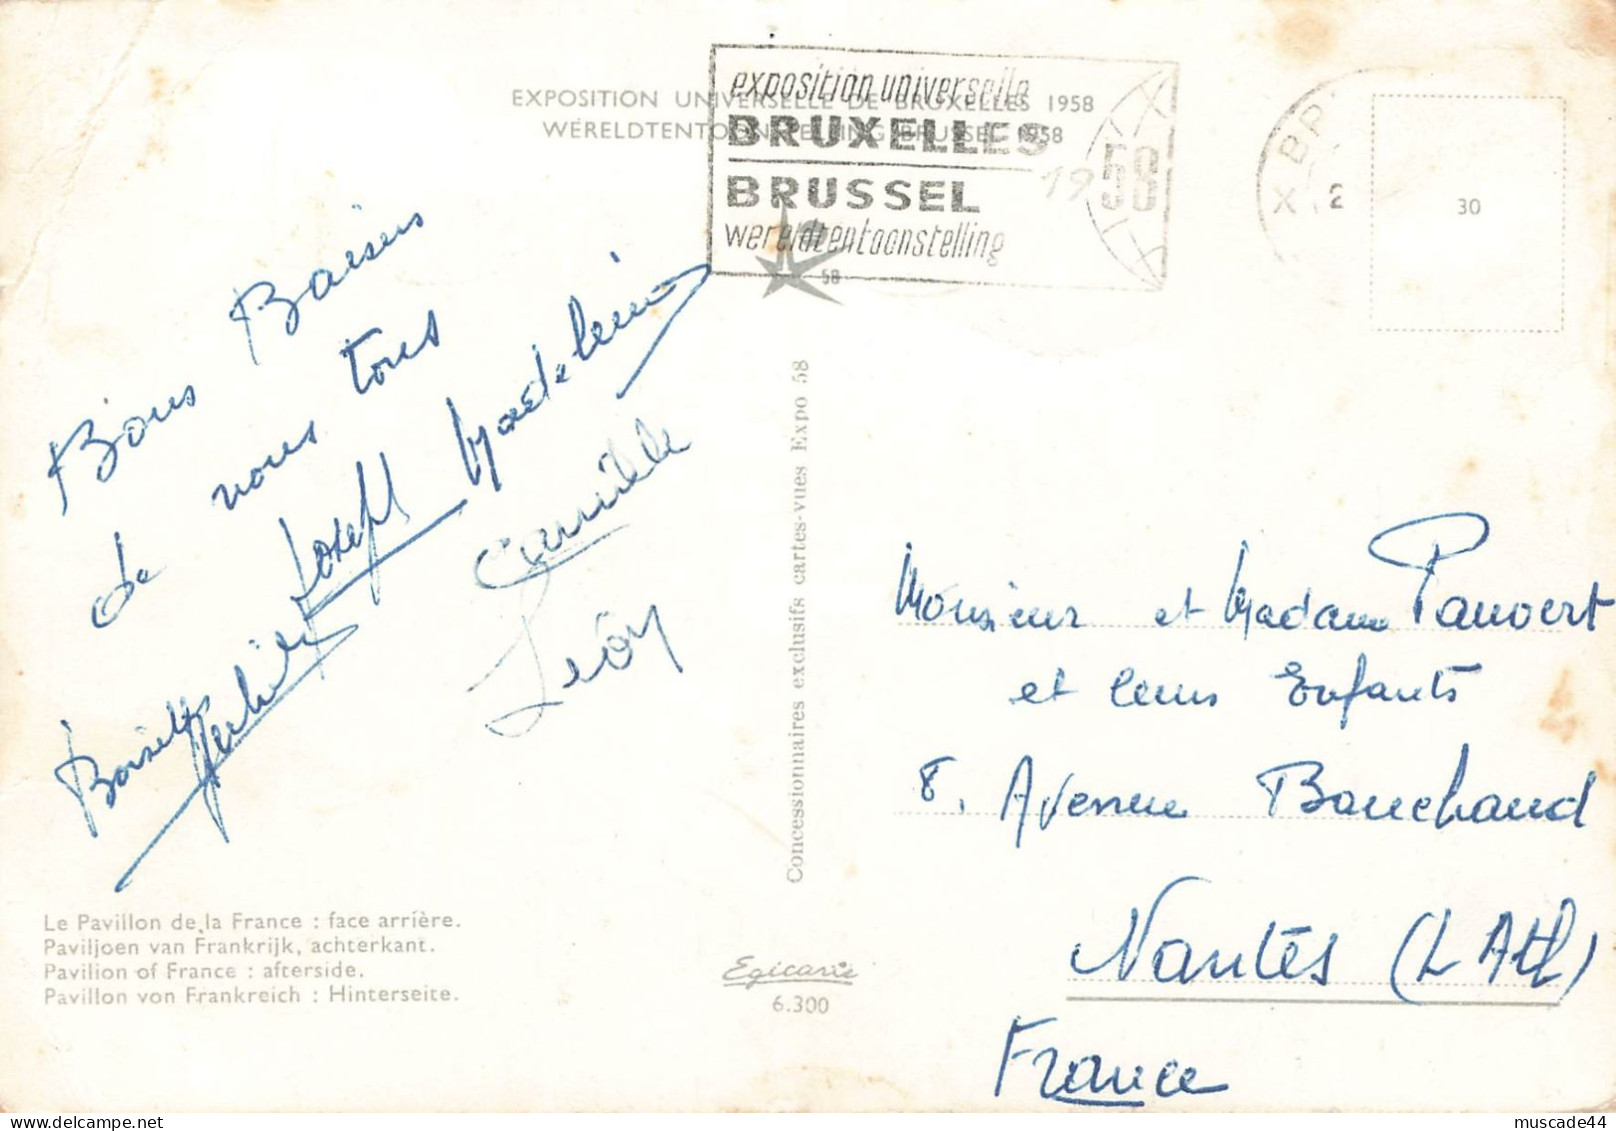 EXPOSITION UNIVERSELLE DE BRUXELLES 1958
WERELDTENTOONSTELLING BRUSSEL 1958
exposition universelle
BRUXELLES
BRUSSEL
wereldtentoonstelling
1958
58
X 2
30
Bons Baisers
de nous tous
Joseph Madeleine
Camille
Léon
Concessionnaires exclusifs cartes-vues Expo 58
Monsieur et Madame Pauvert
et leurs Enfants
8, Avenue Bouchaud
Nantes (L Atl)
France
Le Pavillon de la France : face arrière.
Paviljoen van Frankrijk, achterkant.
Pavilion of France : afterside.
Pavillon von Frankreich : Hinterseite.
Egicarte
6.300
muscade44